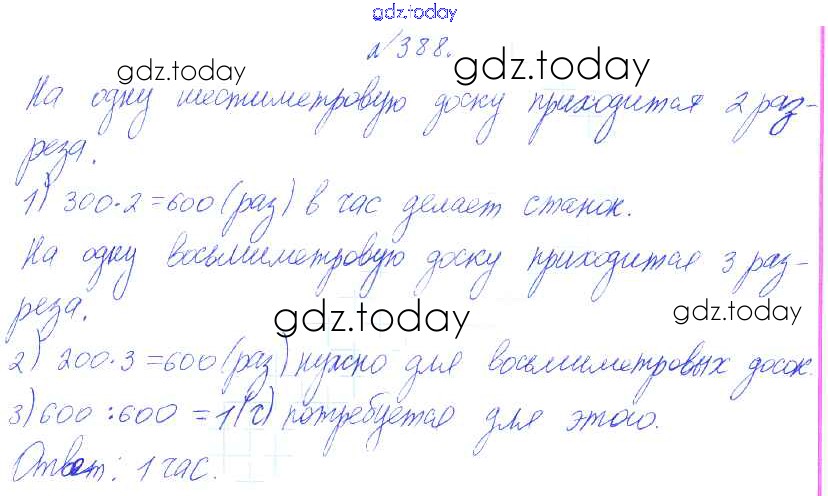 gdz.today
№388.
gdz.today gdz.today
На одну шестиметровую доску приходится 2 раз-
реза.
1) 300·2=600 (раз) в час делает станок.
На одну восьмиметровую доску приходится 3 раз-
реза.
gdz.today gdz.today
2) 200·3=600 (раз) нужно для восьмиметровых досок.
3) 600:600=1 (ч) потребуется для этого.
Ответ: 1 час.